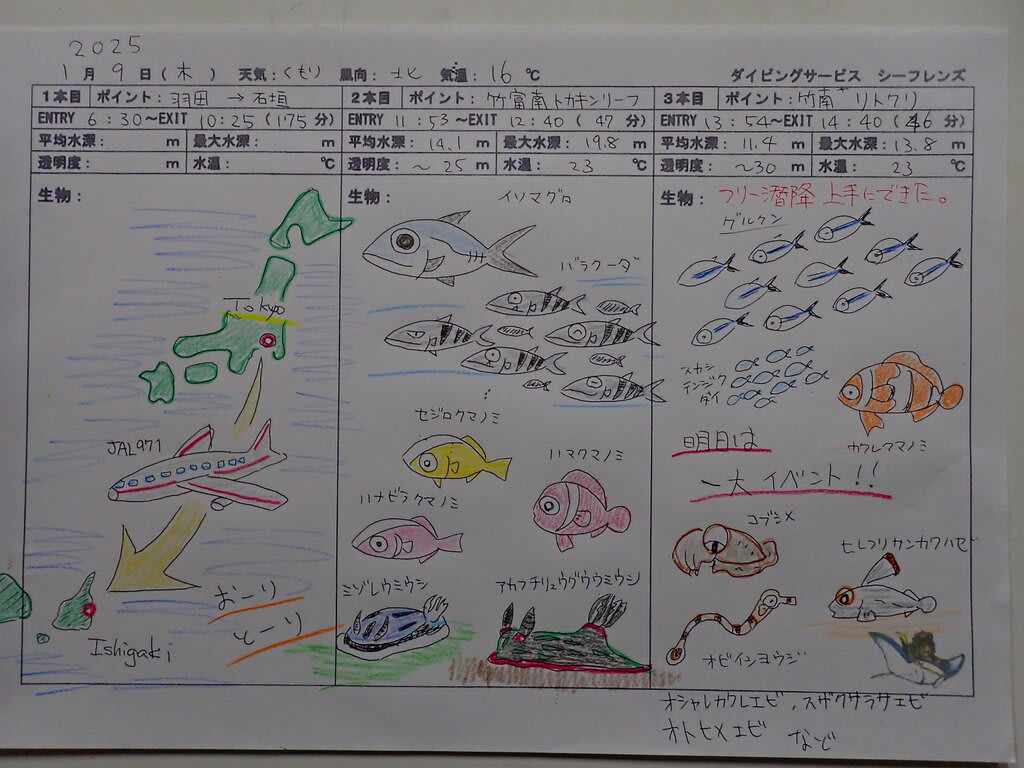 2025
1月 9日(木) 天気:くもり 風向:北 気温:16℃ ダイビングサービス シーフレンズ
1本目 ポイント:羽田→石垣
ENTRY 6:30~EXIT 10:25(175分)
平均水深: m 最大水深: m
透明度: m 水温: ℃
生物:
Tokyo
JAL971
おーり
とーり
Ishigaki
2本目 ポイント:竹富南トカキンリーフ
ENTRY 11:53~EXIT 12:40(47分)
平均水深:14.1m 最大水深:19.8m
透明度:~25m 水温:23℃
生物: イソマグロ
バラクーダ
セジロクマノミ
ハマクマノミ
ハナビラクマノミ
ミゾレウミウシ
アカフチリュウグウウミウシ
3本目 ポイント:竹南 リトクリ
ENTRY 13:54~EXIT 14:40(46分)
平均水深:11.4m 最大水深:13.8m
透明度:~30m 水温:23℃
生物: フリー潜降 上手にできた。
グルクン
スカシ
テンジク
ダイ
カクレクマノミ
明日は
一大イベント!!
コブシメ
ヒレフリサンカクハゼ
オビイシヨウジ
オシャレカクレエビ、スザクサラサエビ
オトヒメエビ など